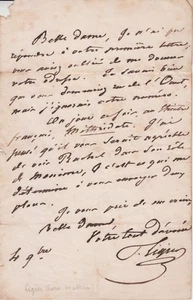 Belle dame, Je n'ai pu
répondre à votre première lettre,
vous aviez oublié de me donner
votre adresse. Je savais bien
que vous demeuriez rue de l'Ouest,
mais j'ignorais votre numéro.
On joue ce soir, au théâtre
français, Mithridate. J'ai
pensé qu'il vous serait agréable
de voir Rachel dans son rôle
de Monime, c'est ce qui me
détermine à vous envoyer deux
places.
Je vous prie de me croire,
Belle dame,
Votre tout dévoué
4 9bre